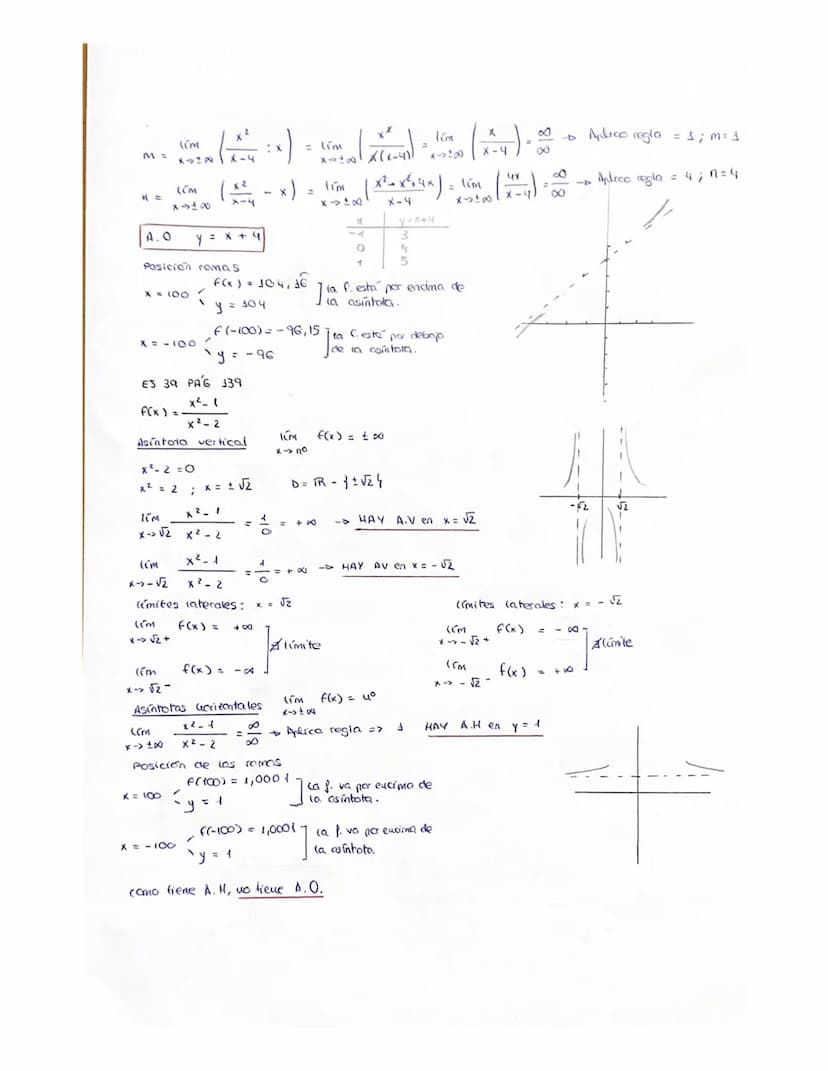 m = lím x→±∞ (x²/x-4 : x) = lím x→±∞ (x²/x(x-4)) = lím x→±∞ (x/x-4) = ∞/∞ → Aplico regla = 1 ; m=1
n = lím x→±∞ (x²/x-4 - x) = lím x→±∞ (x²-x²+4x/x-4) = lím x→±∞ (4x/x-4) = ∞/∞ → Aplico regla = 4 ; n=4
A.O y = x + 4
x | y=x+4
-1 | 3
0 | 4
1 | 5
Posición ramas
x = 100
f(x) = 104,16
y = 104
la f. está por encima de
la asíntota.
x = -100
f(-100) = -96,15
y = -96
la f. está por debajo
de la asíntota.
EJ 39 PÁG 139
f(x) = x²-1/x²-2
Asíntota vertical lím x→nº f(x) = ±∞
x²-2=0
x² = 2 ; x = ±√2 D = ℝ - {±√2}
-√2 √2
lím x→√2 x²-1/x²-2 = 1/0 = +∞ → HAY A.V en x = √2
lím x→-√2 x²-1/x²-2 = 1/0 = +∞ → HAY AV en x = -√2
límites laterales: x = √2
lím x→√2+ f(x) = +∞
lím x→√2- f(x) = -∞
∄ límite
límites laterales: x = -√2
lím x→-√2+ f(x) = -∞
lím x→-√2- f(x) = +∞
∄ límite
Asíntotas horizontales lím x→±∞ f(x) = nº
lím x→±∞ x²-1/x²-2 = ∞/∞ → Aplico regla => 1 HAY A.H en y = 1
Posición de las ramas
x = 100
f(100) = 1,0001
y = 1
la f. va por encima de
la asíntota.
x = -100
f(-100) = 1,0001
y = 1
la f. va por encima de
la asíntota.
como tiene A.H, no tiene A.O.